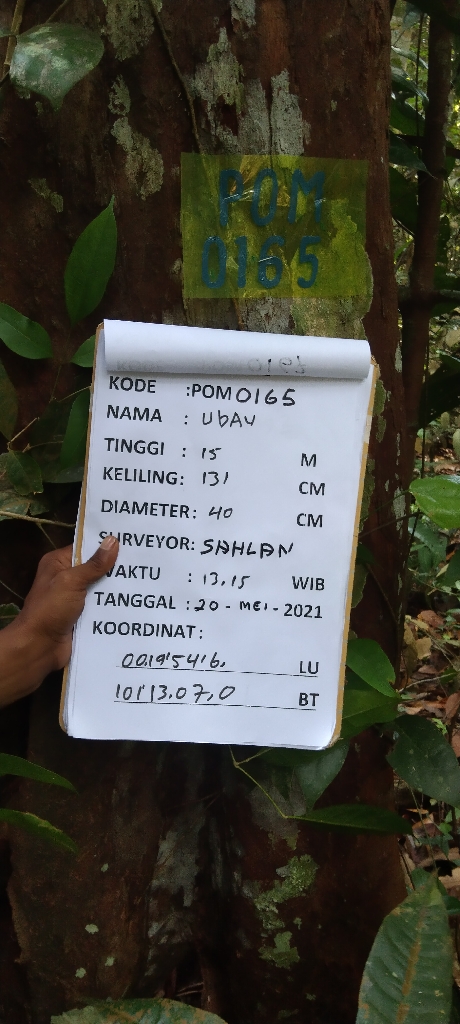 POM
0165
KODE :POM0165
NAMA : UbAU
TINGGI : 15 M
KELILING: 131 CM
DIAMETER: 40 CM
SURVEYOR: SAHLAN
WAKTU : 13.15 WIB
TANGGAL : 20 - MEI - 2021
KOORDINAT:
LU
BT